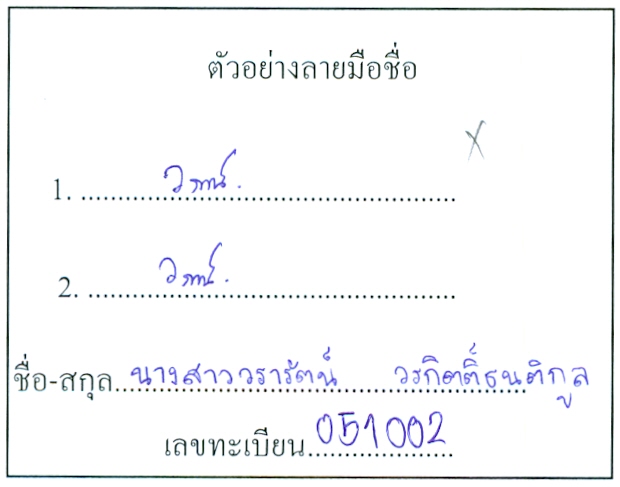 ตัวอย่างลายมือชื่อ
1. ........................................
2. ........................................
ชื่อ-สกุล นางสาววรารัตน์ วรกิตติ์ธนติกูล
เลขทะเบียน 051002